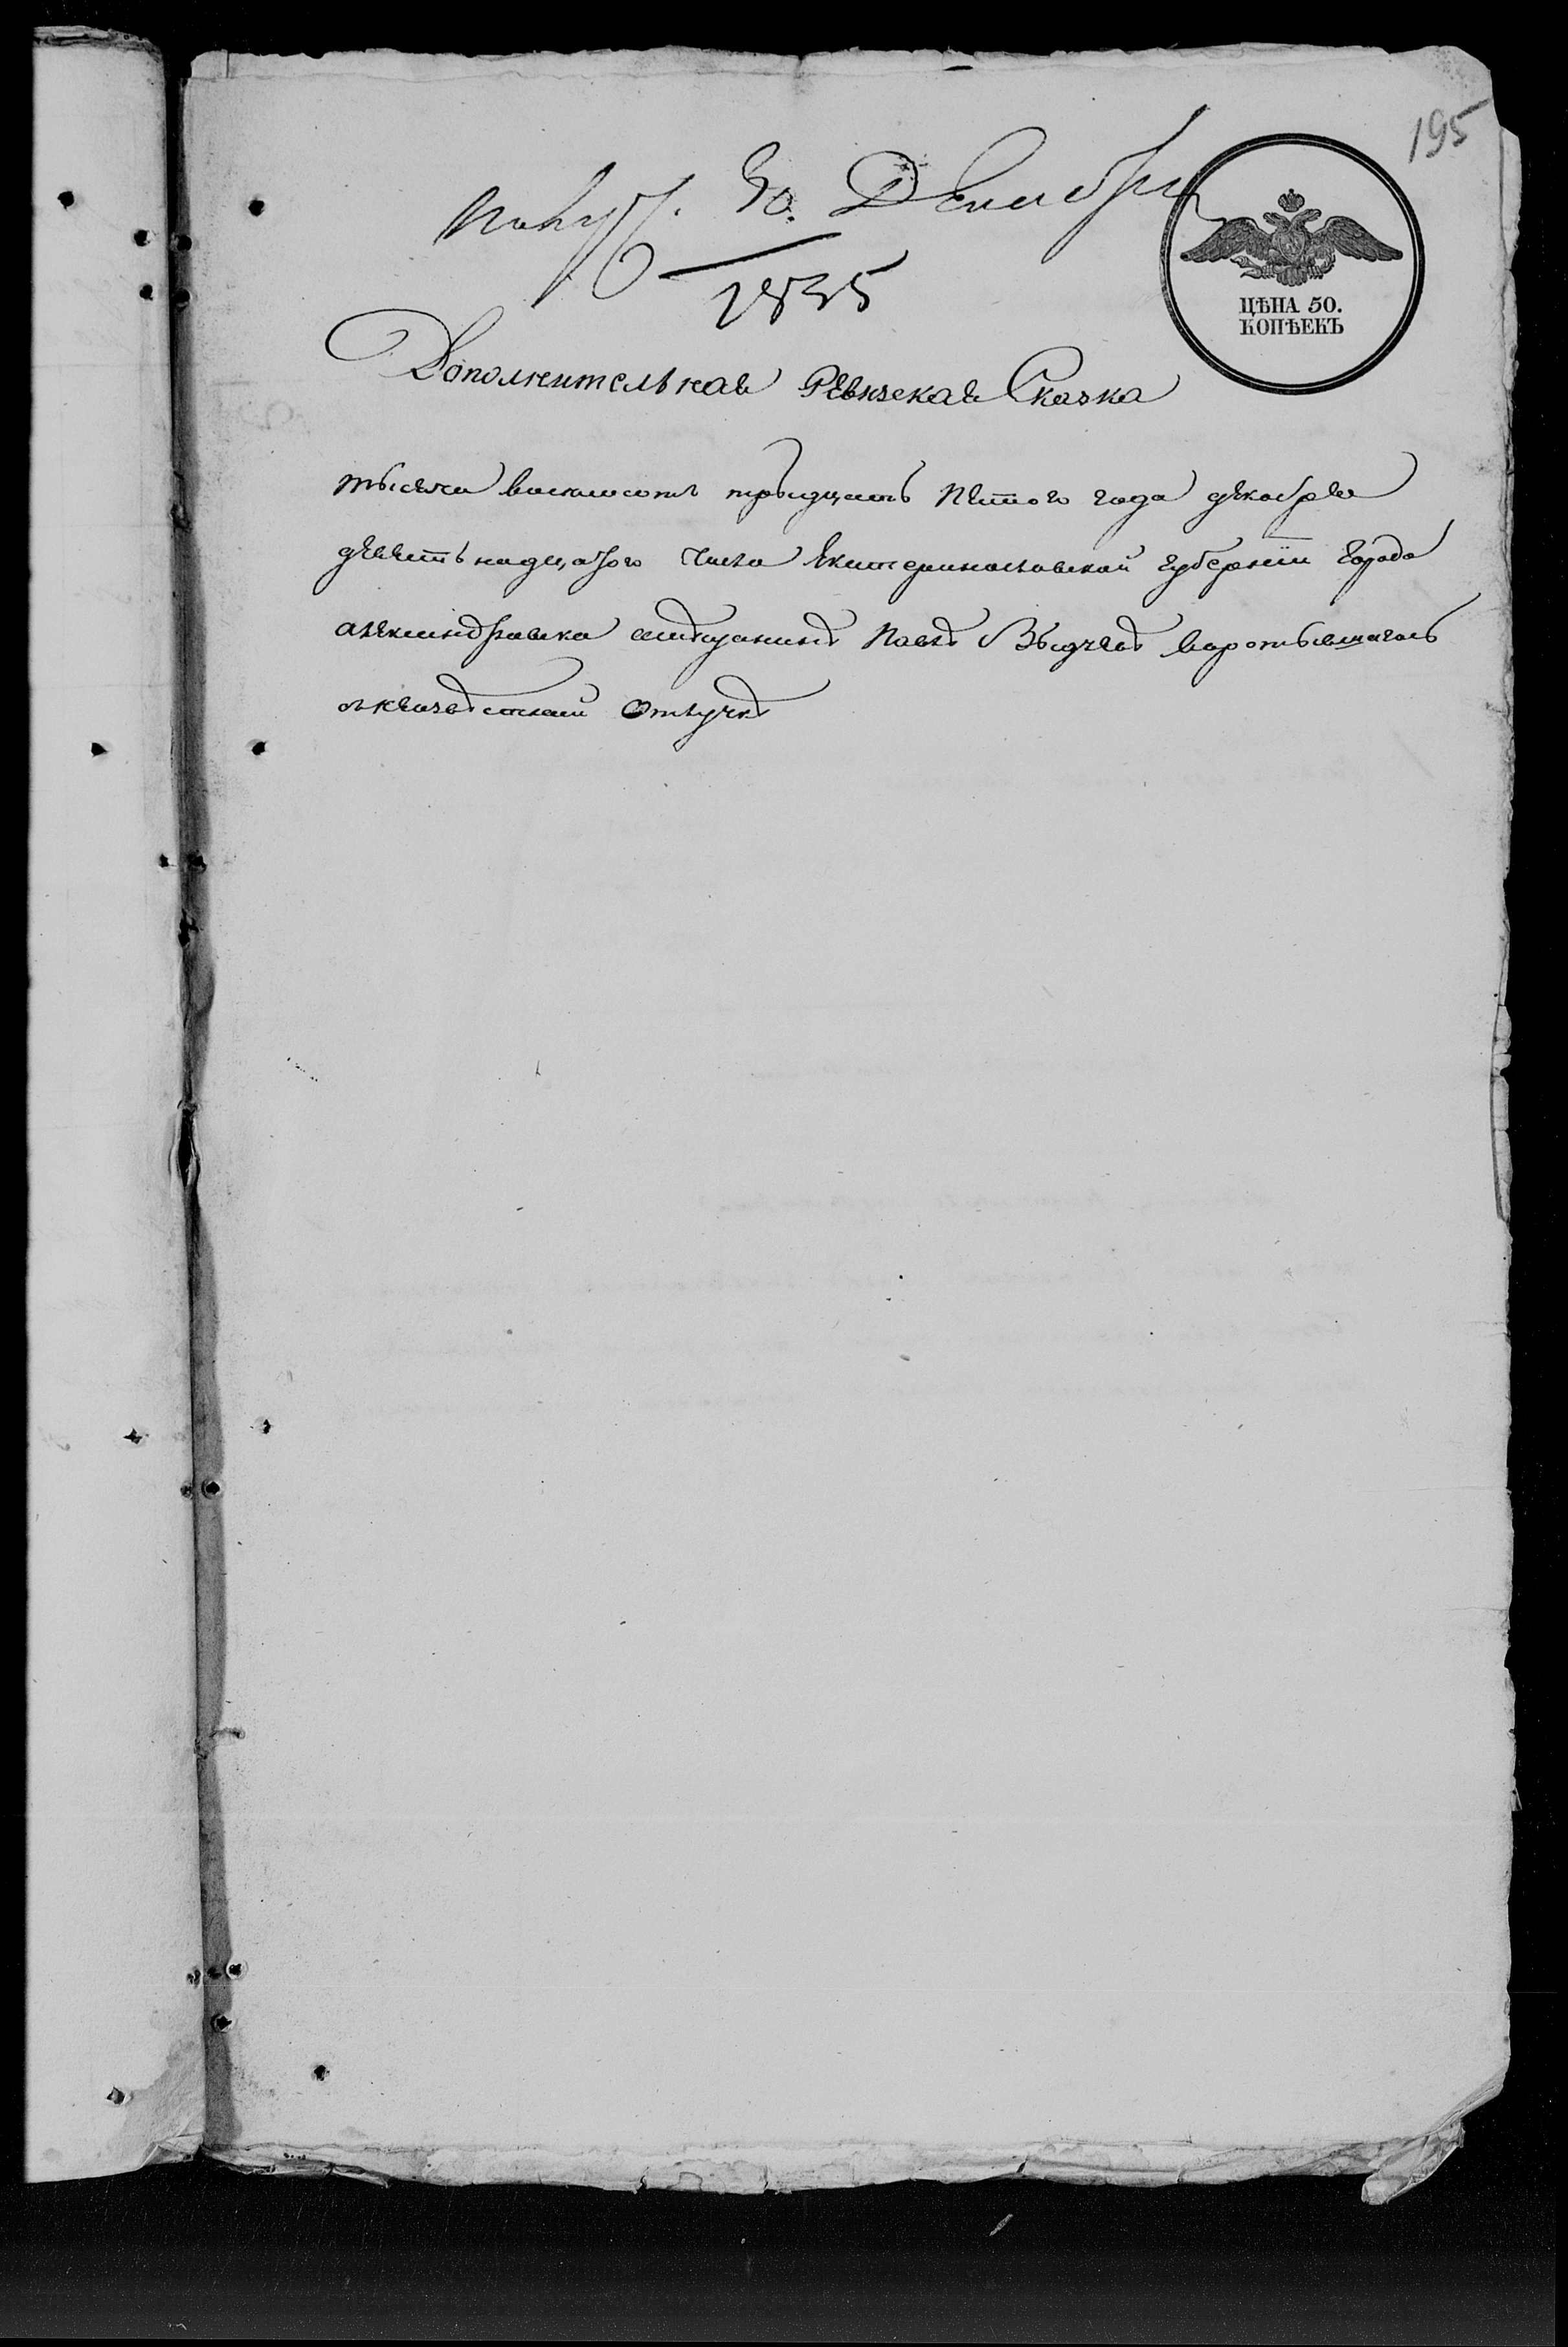 195
Получ. 30. Декабря
1835
ЦѢНА 50.
КОПѢЕКЪ
Дополнительная Ревизская Сказка
тысяча восемьсотъ тридцать пятого года декабря
девятьнадцатого числа Екатеринославской губернїи города
александровска мѣщанинъ
отлучкѣ